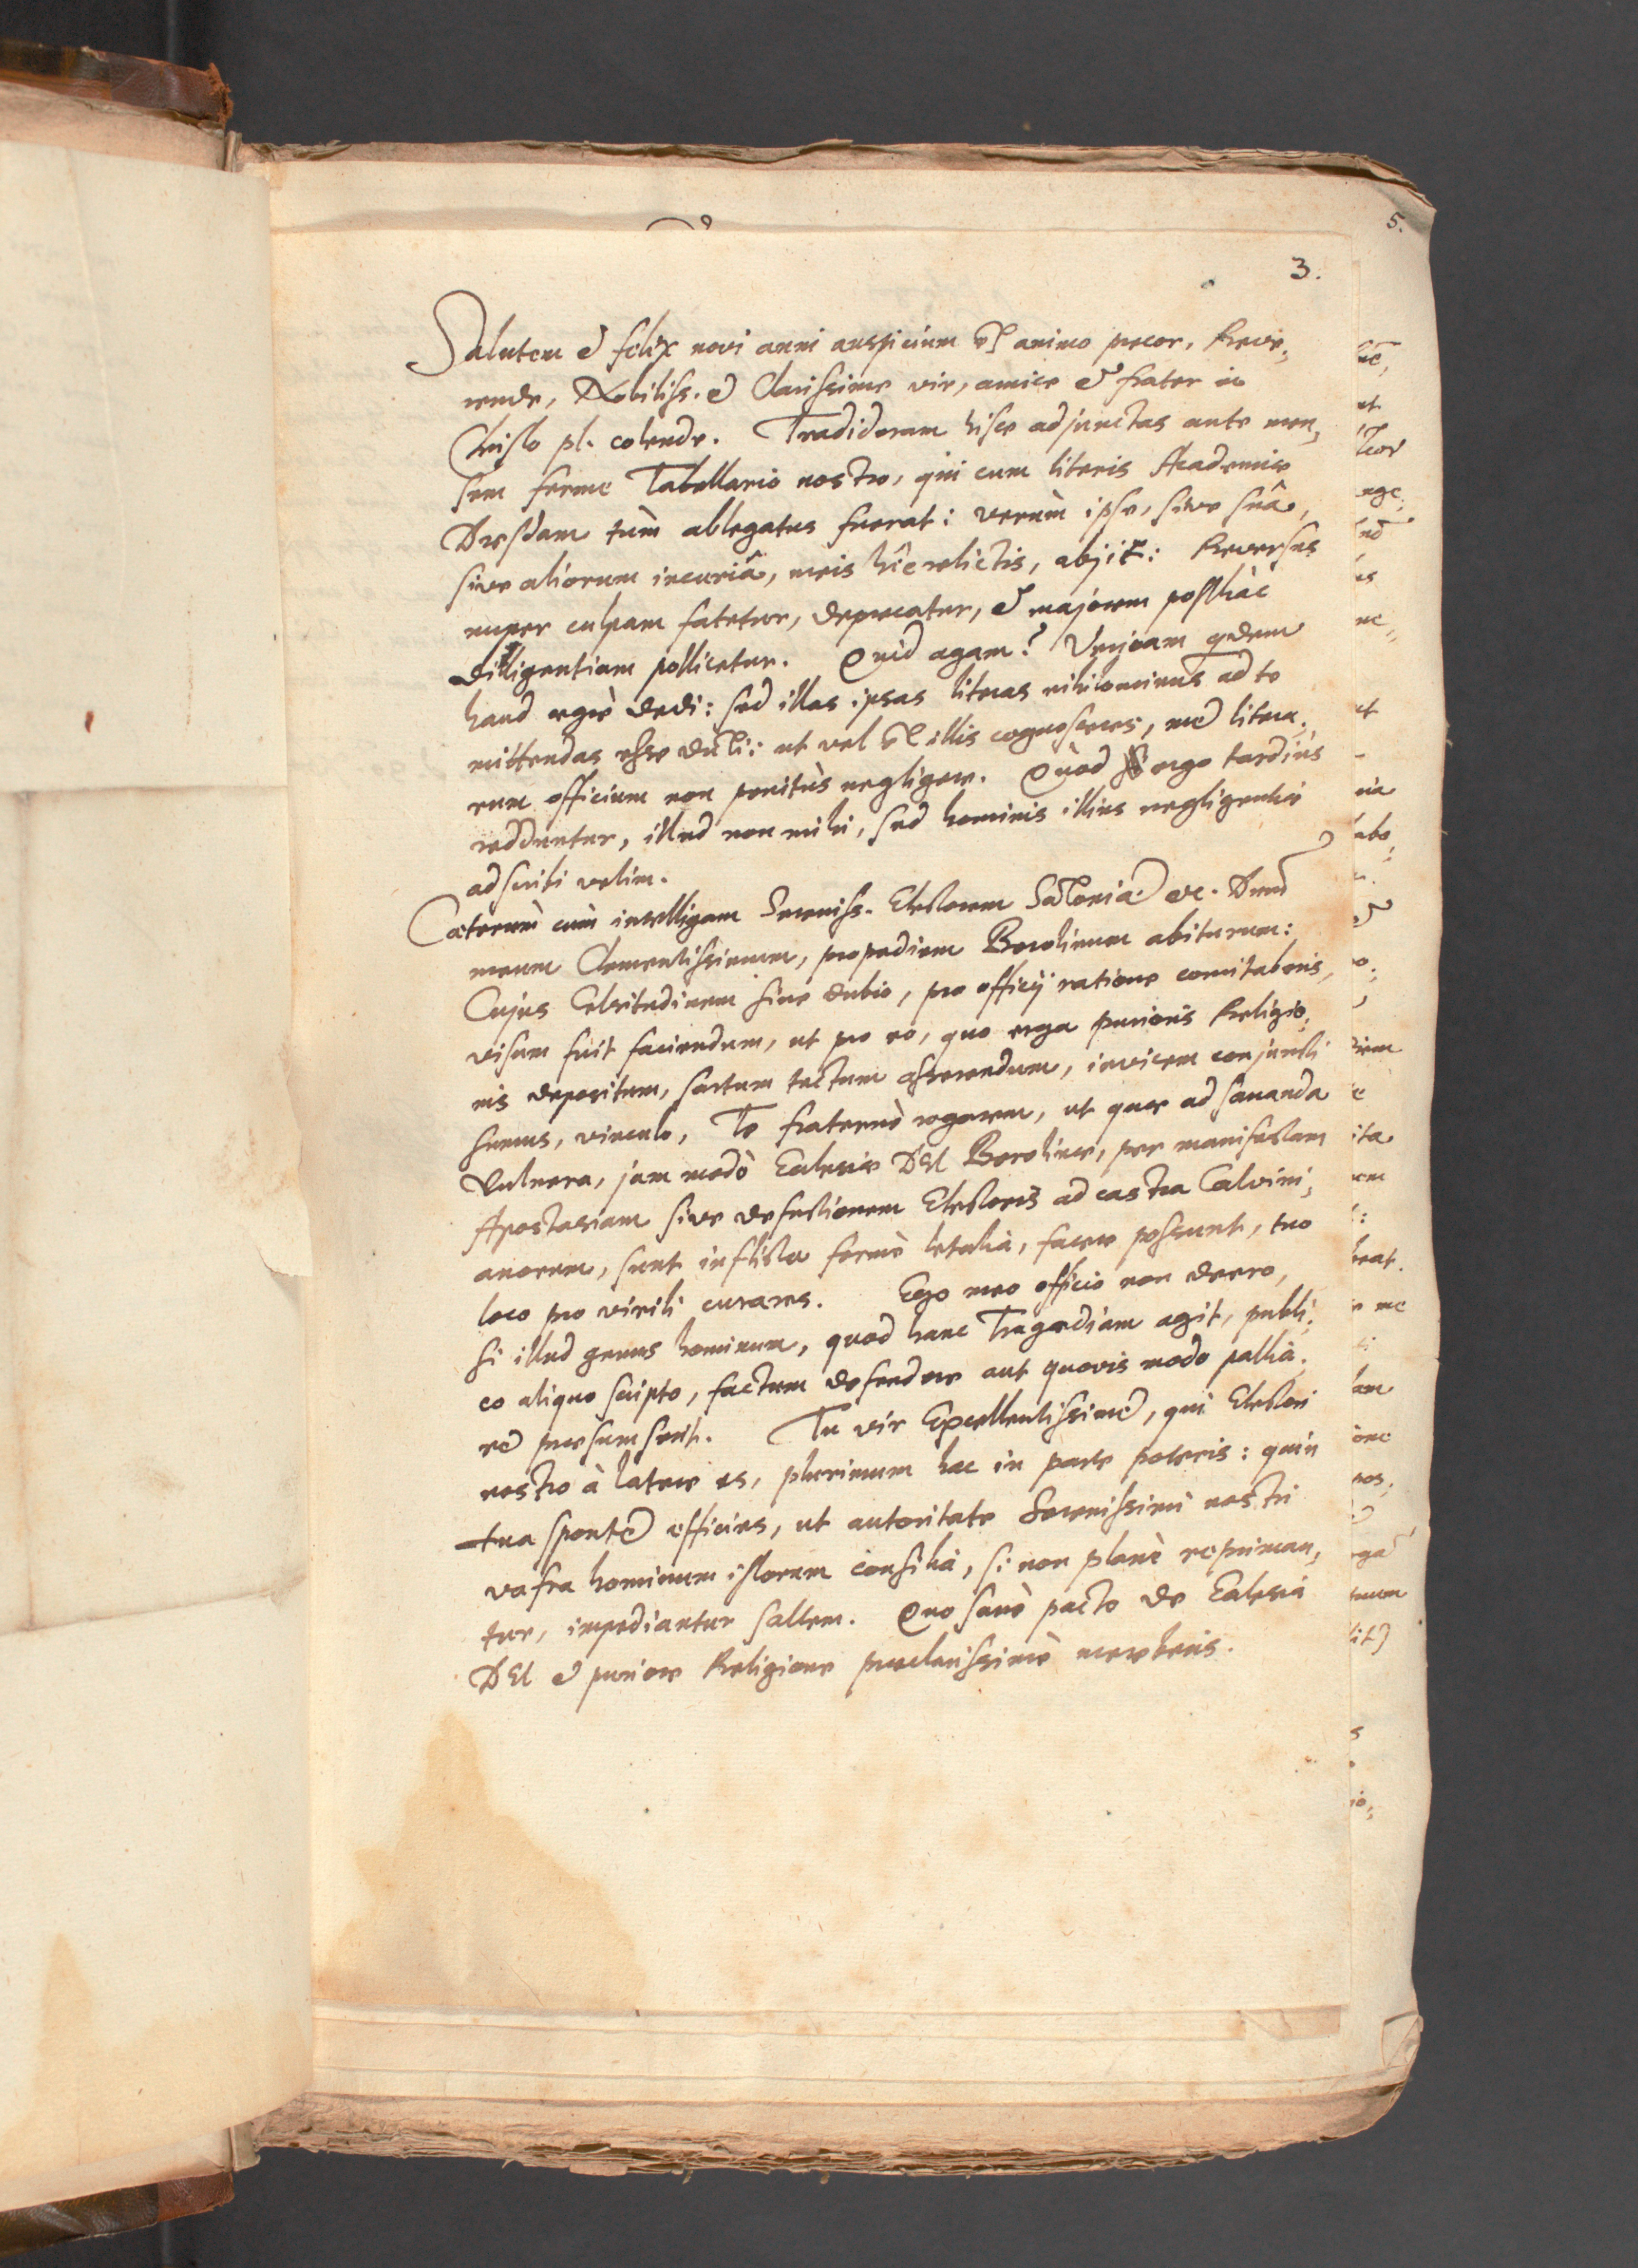 5.
3.
Salutem & felix novi anni auspicium ex animo precor, Reve,
rende, Nobiliss. & Clarissime vir, amice & frater in
Christo pl. colende. Tradideram hisce adjunctas ante men,
sem ferme Tabellario nostro, qui cum literis Academiæ
Dresdam tùm ablegatus fuerat: verùm ipse, sive suâ,
sive aliorum incuriâ, meis hîc relictis, abijt: Reversus
nuper culpam fatetur, deprecatur, & majorem posthàc
diligentiam pollicetur. Quid agam? Veniam qdem
haud ægrè dedi: sed illas ipsas literas nihilominus ad te
mittendas esse duxi: ut vel ex illis cognosceres, me litera,
rum officium non penitùs negligere. Quòd ergo tardiùs
redduntur, illud non mihi, sed hominis illius negligentiæ
adscribi velim.
Cæterùm cùm intelligam Sereniss. Electorem Saxoniæ &c. Dnm
meum Clementissimum, propediem Berolinum abiturum:
Cujus Celsitudinem sine dubio, pro officij ratione comitaberis,
visum fuit faciendum, ut pro eo, quo erga purioris Religio,
nis depositum, sartum tectum asserendum, invicem conjuncti
sumus, vinculo, Te fraternè rogarem, ut quæ ad sananda
vulnera, jam modò Ecclesiæ DEI Berolinæ, per manifestam
Apostasiam sive defectionem Electoris ad castra Calvini,
anorum, sunt inflicta fermè letalia, facere possunt, tuo
loco pro virili curares. Ego meo officio non deero,
si illud genus hominum, quod hanc Tragœdiam agit, publi,
co aliquo scripto, factum defendere aut quovis modo pallia,
re præsumserit. Tu vir Excellentissime, qui Electori
nostro à latere es, plurimum hac in parte poteris: quin
tua sponte efficies, ut autoritate Serenissimi nostri
vafra hominum istorum consilia, si non planè repriman,
tur, impediantur saltem. Quo sanè pacto de Ecclesia
DEI & puriore Religione præclarissimè mereberis.